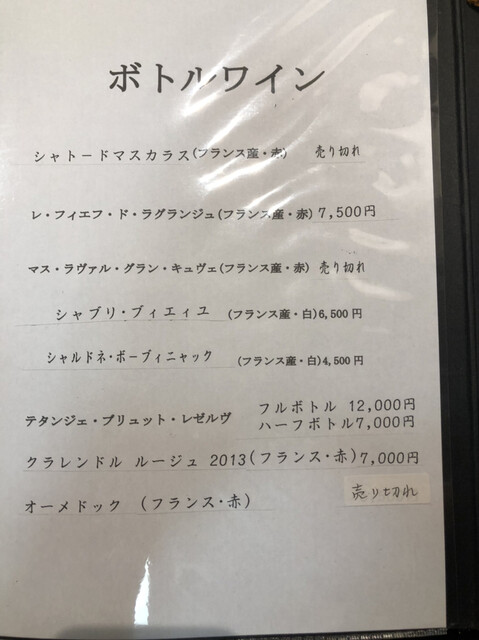 ボトルワイン
シャトードマスカラス(フランス産・赤) 売り切れ
レ・フィエフ・ド・ラグランジュ(フランス産・赤) 7,500円
マス・ラヴァル・グラン・キュヴェ(フランス産・赤) 売り切れ
シャブリ・ブィエィユ (フランス産・白)6,500円
シャルドネ・ボーブィニャック (フランス産・白)4,500円
テタンジェ・ブリュット・レゼルヴ フルボトル 12,000円
ハーフボトル7,000円
クラレンドル ルージュ 2013(フランス・赤)7,000円
オーメドック (フランス・赤) 売り切れ